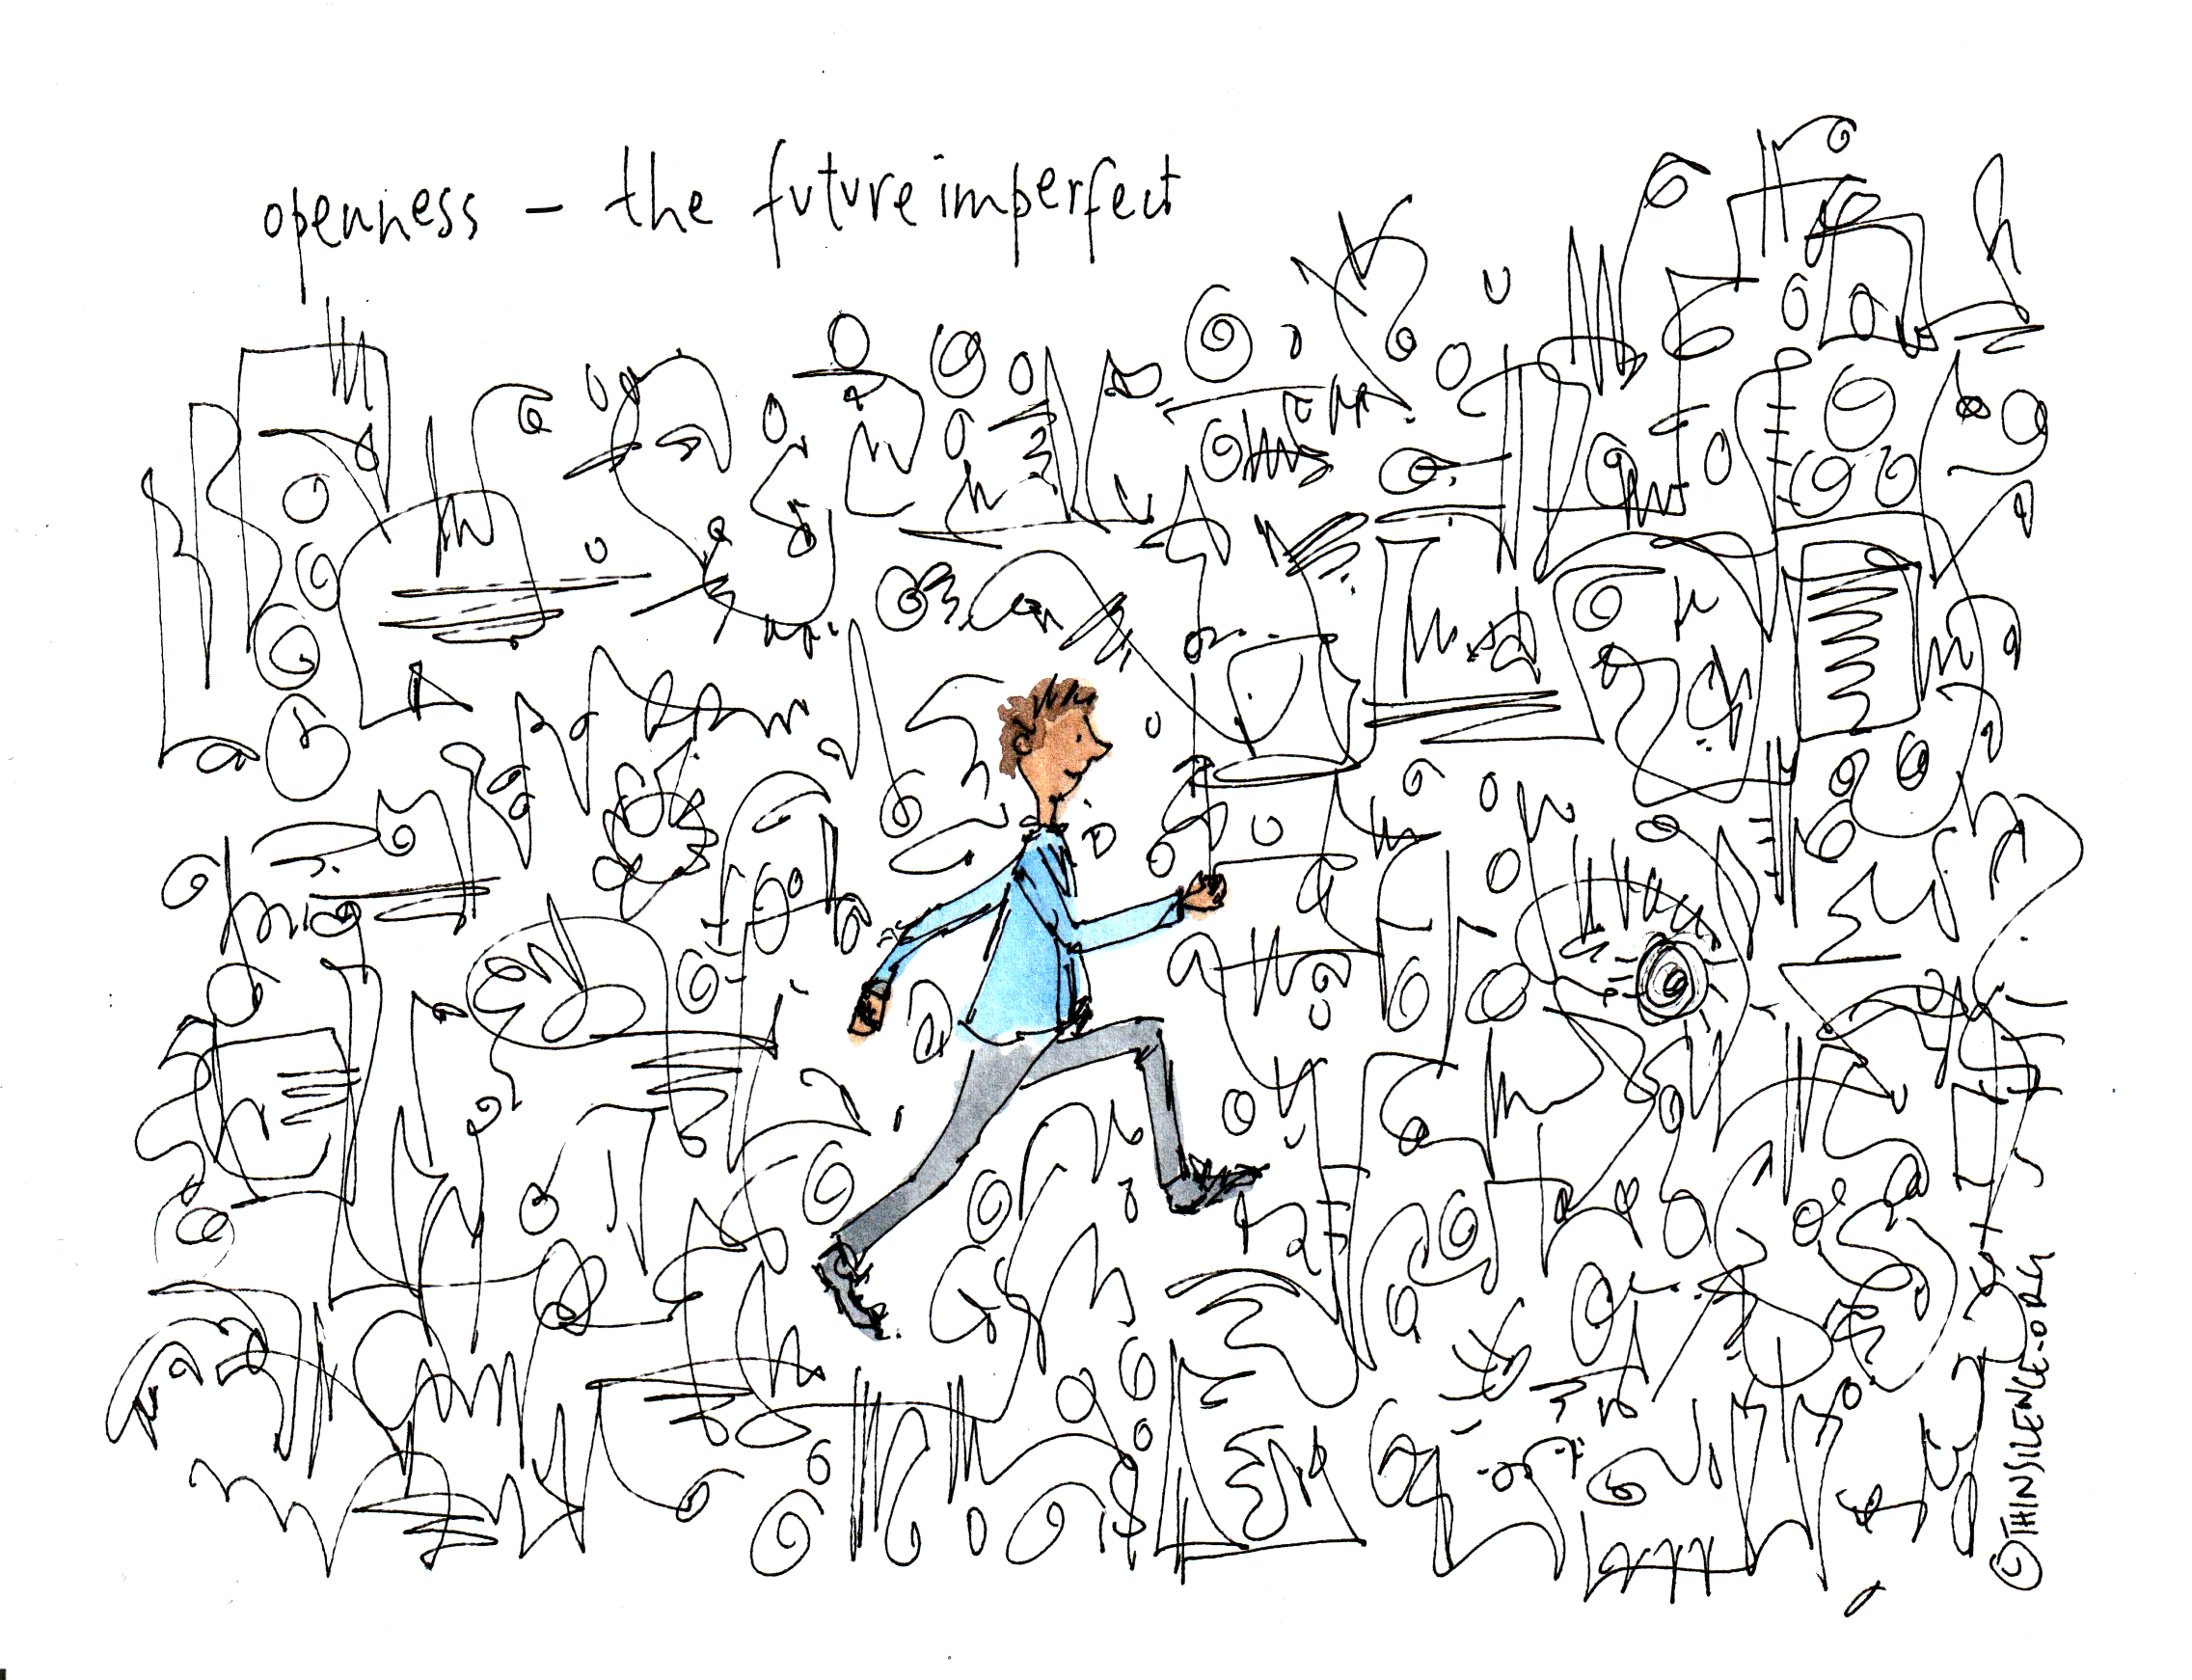 openness – the future imperfect
©THINSILENCE.ORG